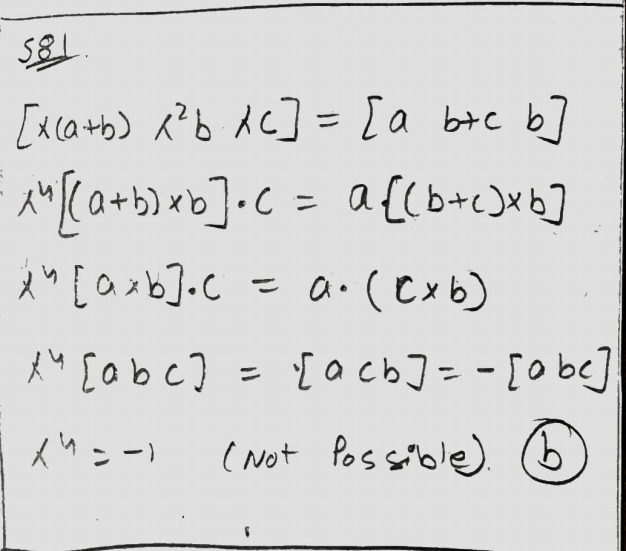 581.
[λ(a+b) λ²b λc] = [a b+c b]
λ⁴[(a+b)×b]·c = a{(b+c)×b]
λ⁴[a×b]·c = a·(c×b)
λ⁴[abc] = [acb] = -[abc]
λ⁴ = -1 (Not Possible). b